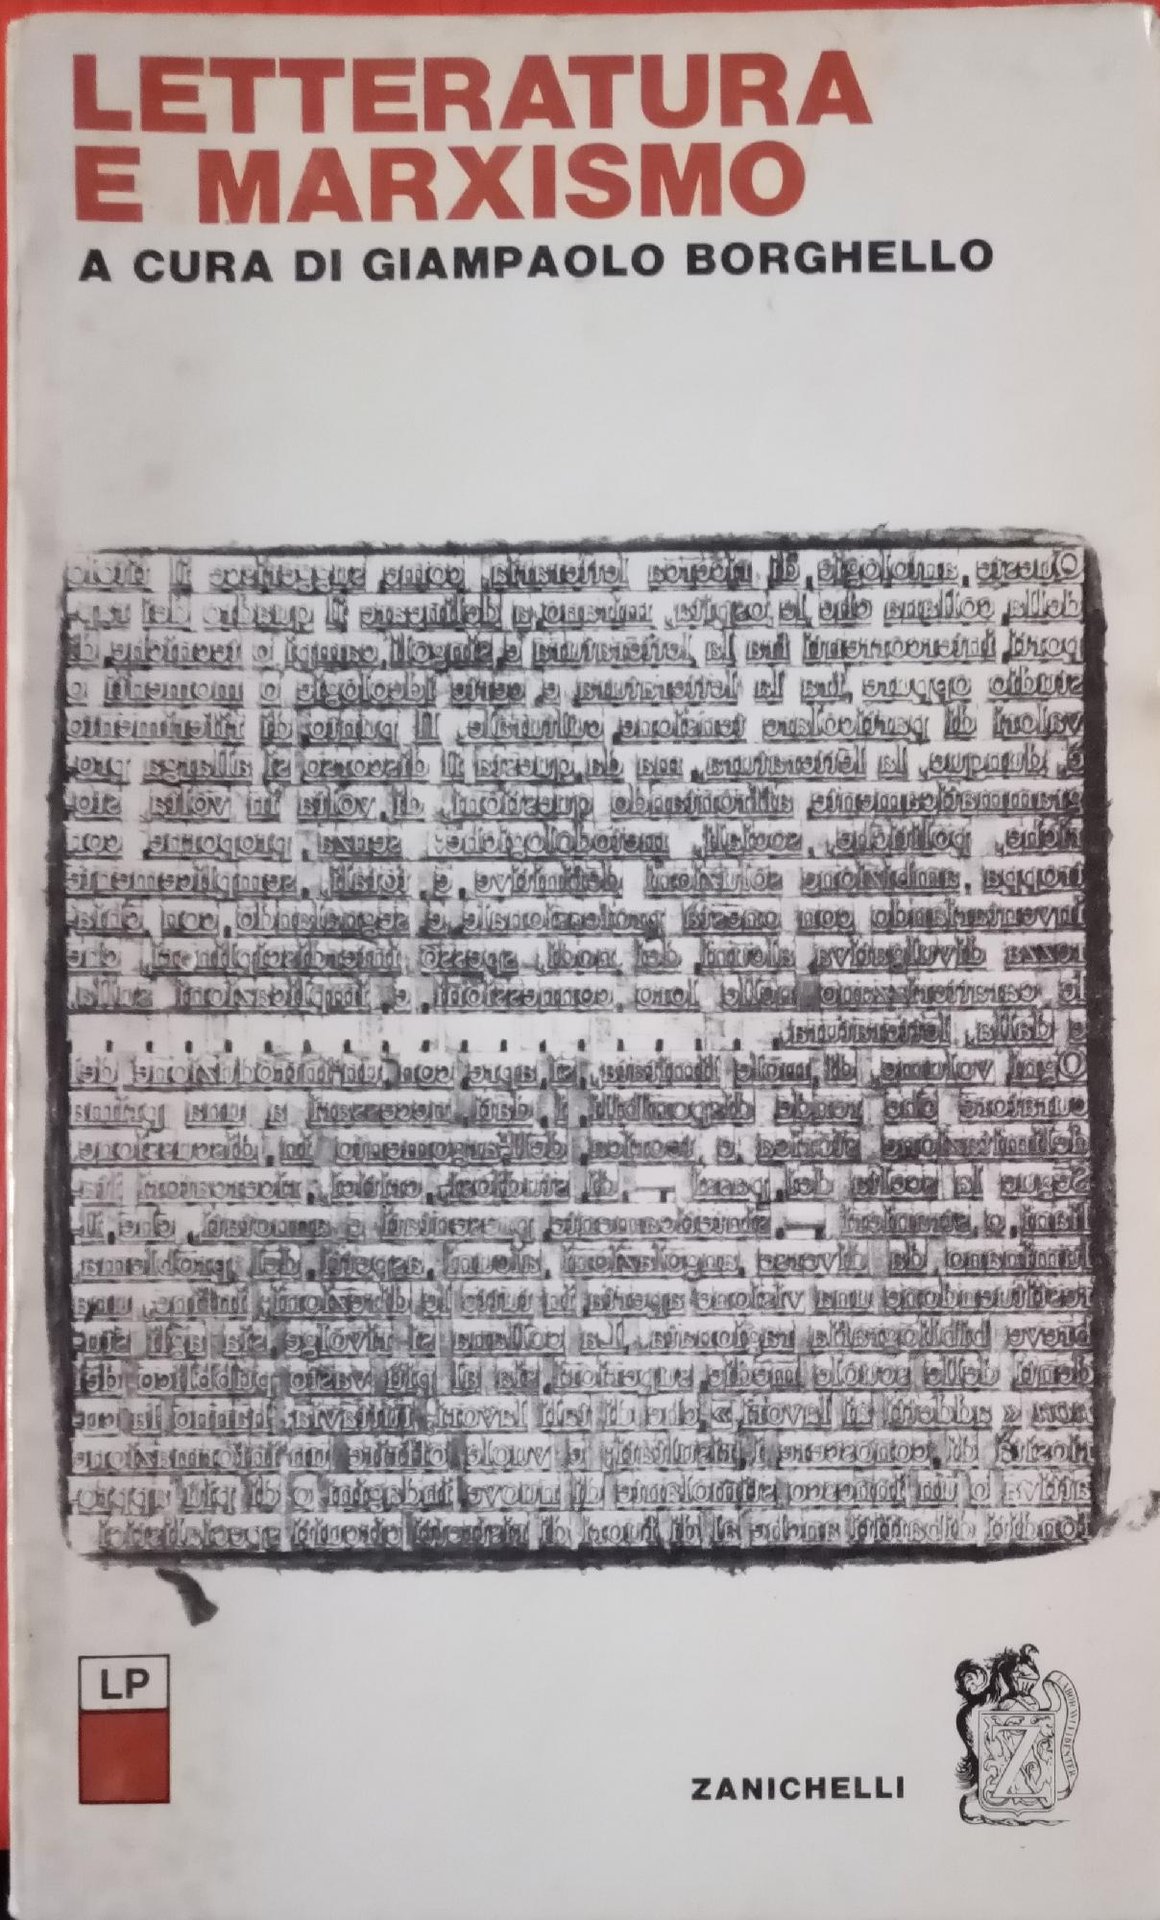 LETTERATURA
E MARXISMO
A CURA DI GIAMPAOLO BORGHELLO
Queste antologie di ricerca letteraria, come suggerisce il titolo
della collana che le ospita, mirano a delineare il quadro dei rap-
porti intercorrenti fra la letteratura e singoli campi o tecniche di
studio oppure fra la letteratura e certe ideologie o momenti o
valori di particolare tensione culturale. Il punto di riferimento
è, dunque, la letteratura, ma da questa il discorso si allarga pro-
grammaticamente affrontando questioni, di volta in volta, sto-
riche, politiche, sociali, metodologiche: senza proporre con
troppa ambizione soluzioni definitive e totali, semplicemente
inventariando con onestà professionale e segnalando con chia-
rezza divulgativa alcuni dei nodi, spesso interdisciplinari, che
le caratterizzano nelle loro connessioni e implicazioni sulla
e dalla letteratura.
Ogni volume, di mole limitata, si apre con un'introduzione del
curatore che rende disponibili i dati necessari a una prima
definizione storica e teorica dell'argomento in discussione.
Segue la scelta dei passi — di studiosi, critici, ricercatori ita-
liani o stranieri —, sinteticamente presentati e annotati, che il-
luminano da diverse angolazioni alcuni aspetti del problema
restituendone una visione aperta in tutte le direzioni; infine, una
breve bibliografia ragionata. La collana si rivolge sia agli stu-
denti delle scuole medie superiori, sia al più vasto pubblico dei
non « addetti ai lavori » che di tali lavori, tuttavia, hanno la cu-
riosità di conoscere i risultati; e vuole offrire un'informazione
attiva o un innesco stimolante di nuove indagini o di più appro-
fonditi dibattiti anche al di fuori di ristretti circuiti specialistici.
LP
ZANICHELLI
LABORAVI FIDENTER
Z